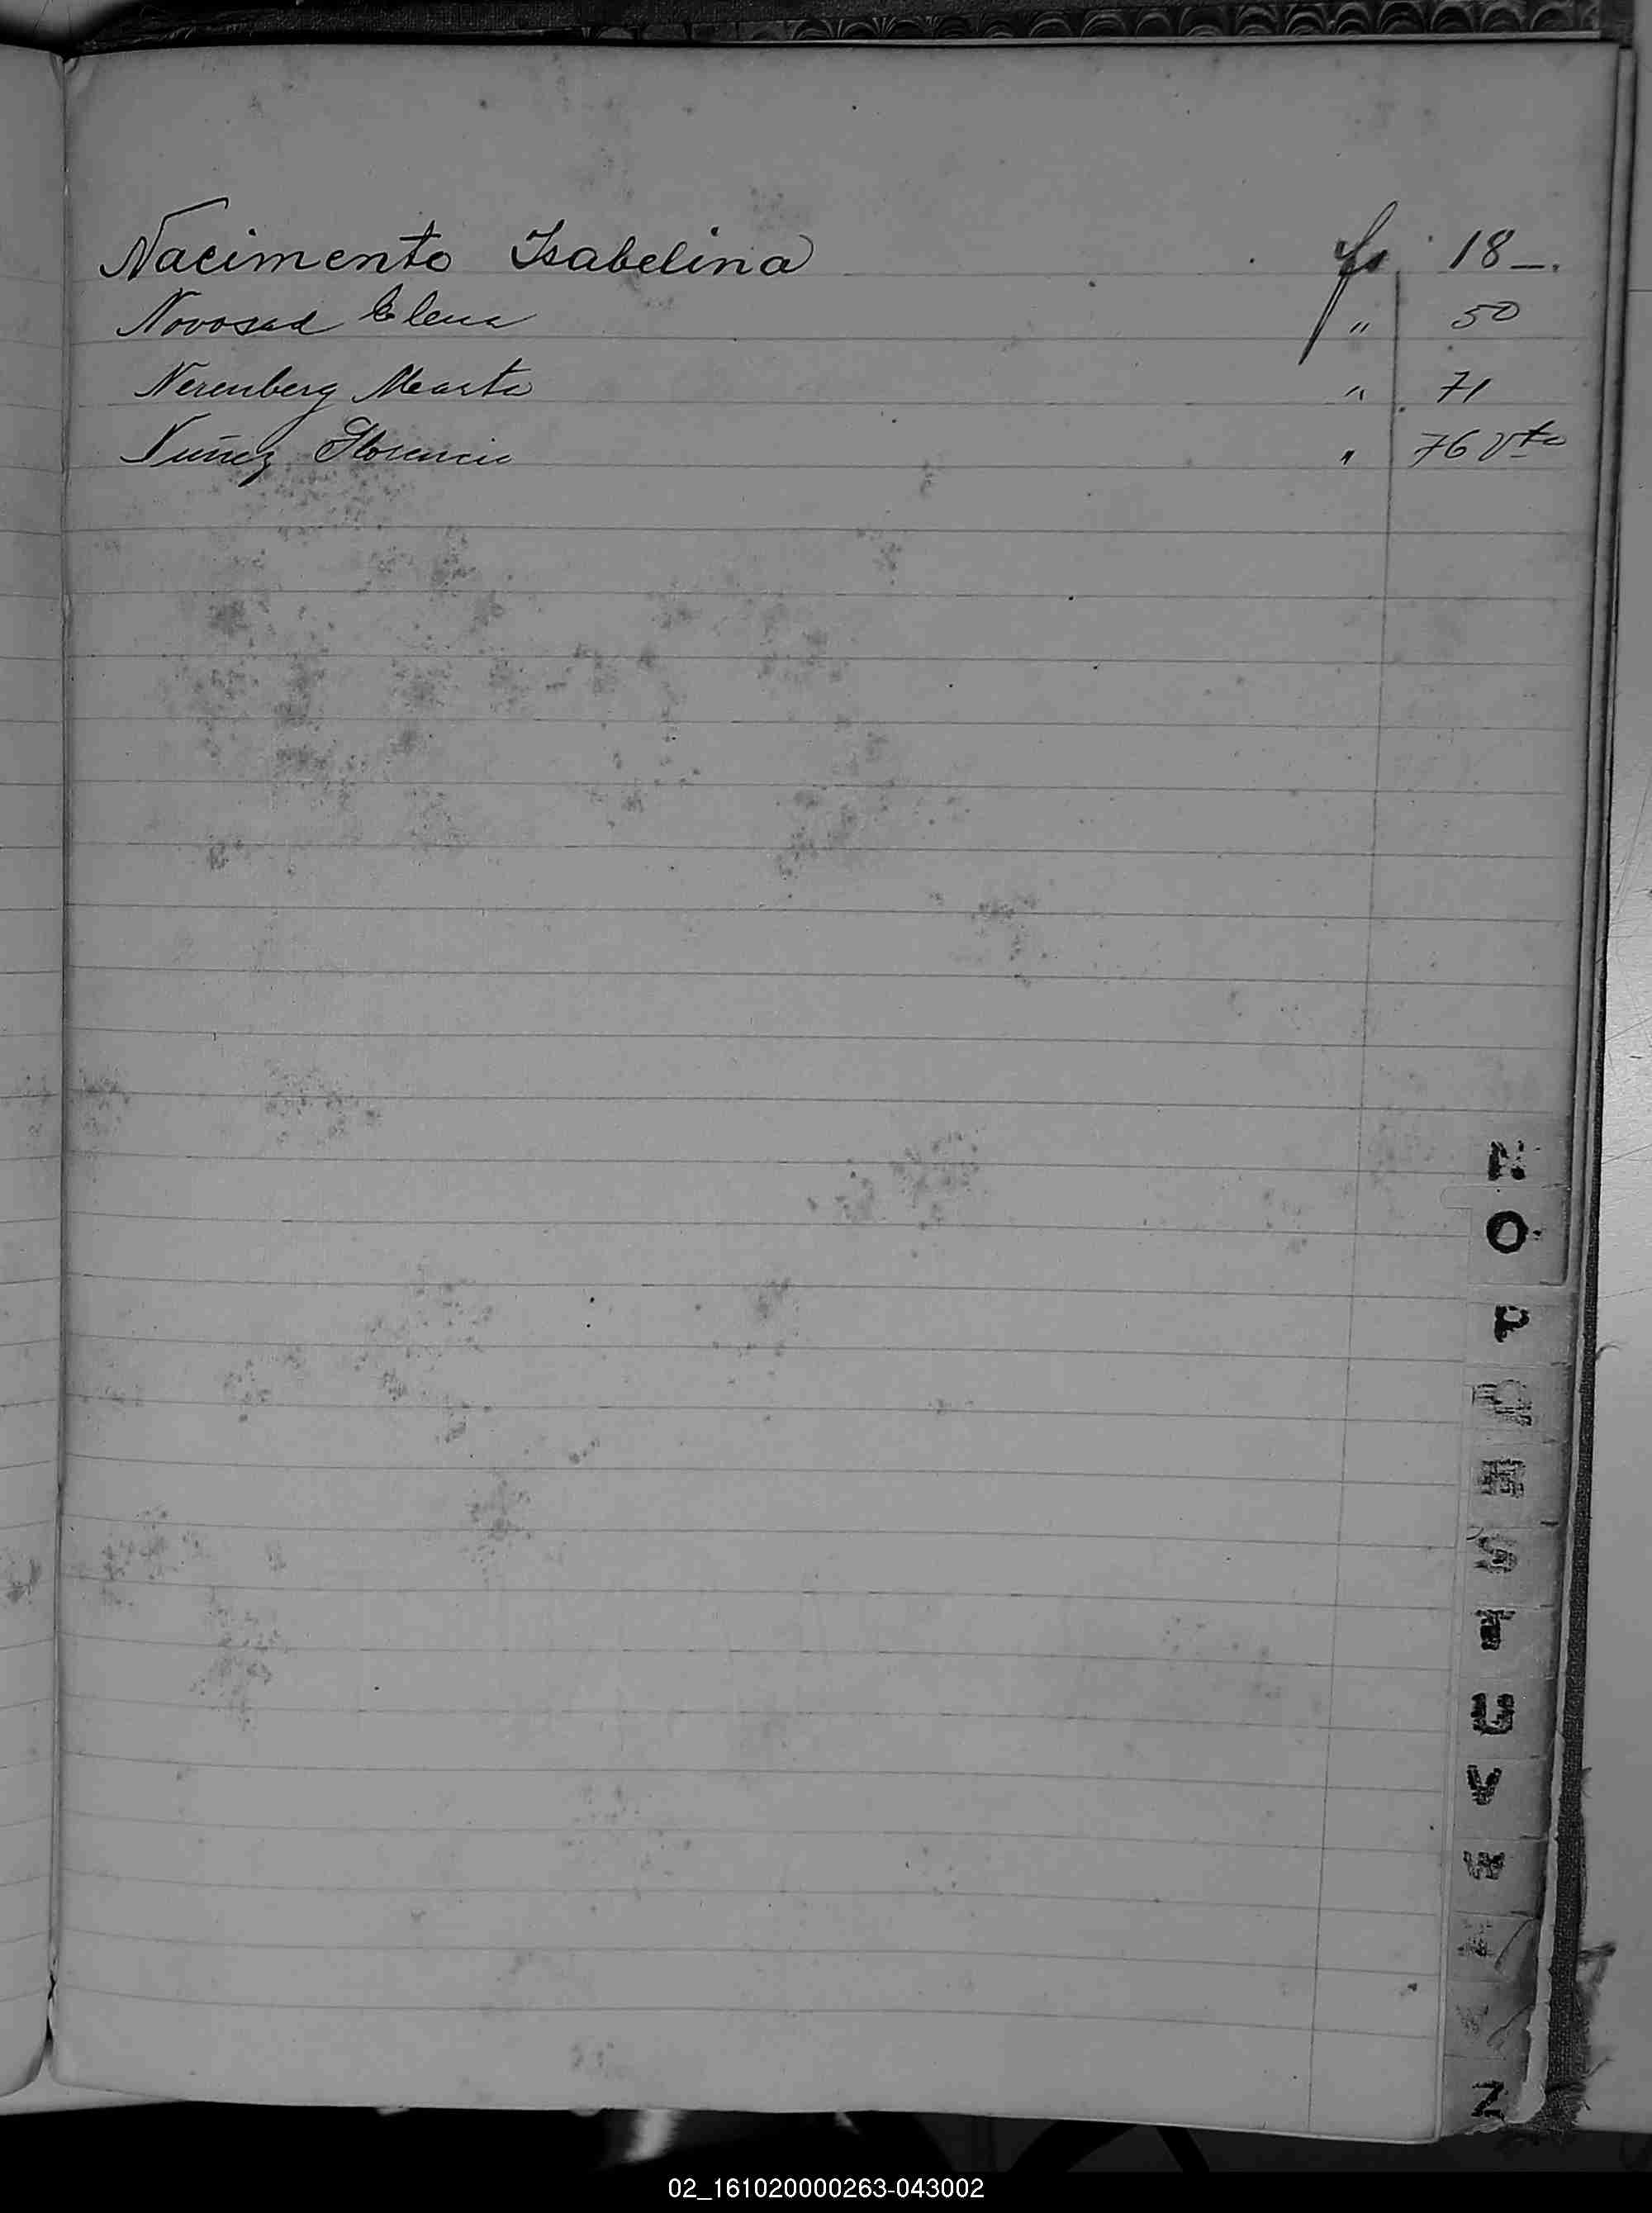 Nacimento Isabelina fs. 18 –.
Novosad Elena " 50
Nerenberg Marta " 71
Nuñez Florencio " 76 Vta
N
O
P
Q
R
S
T
U
V
W
X
Y
Z
02_161020000263-043002